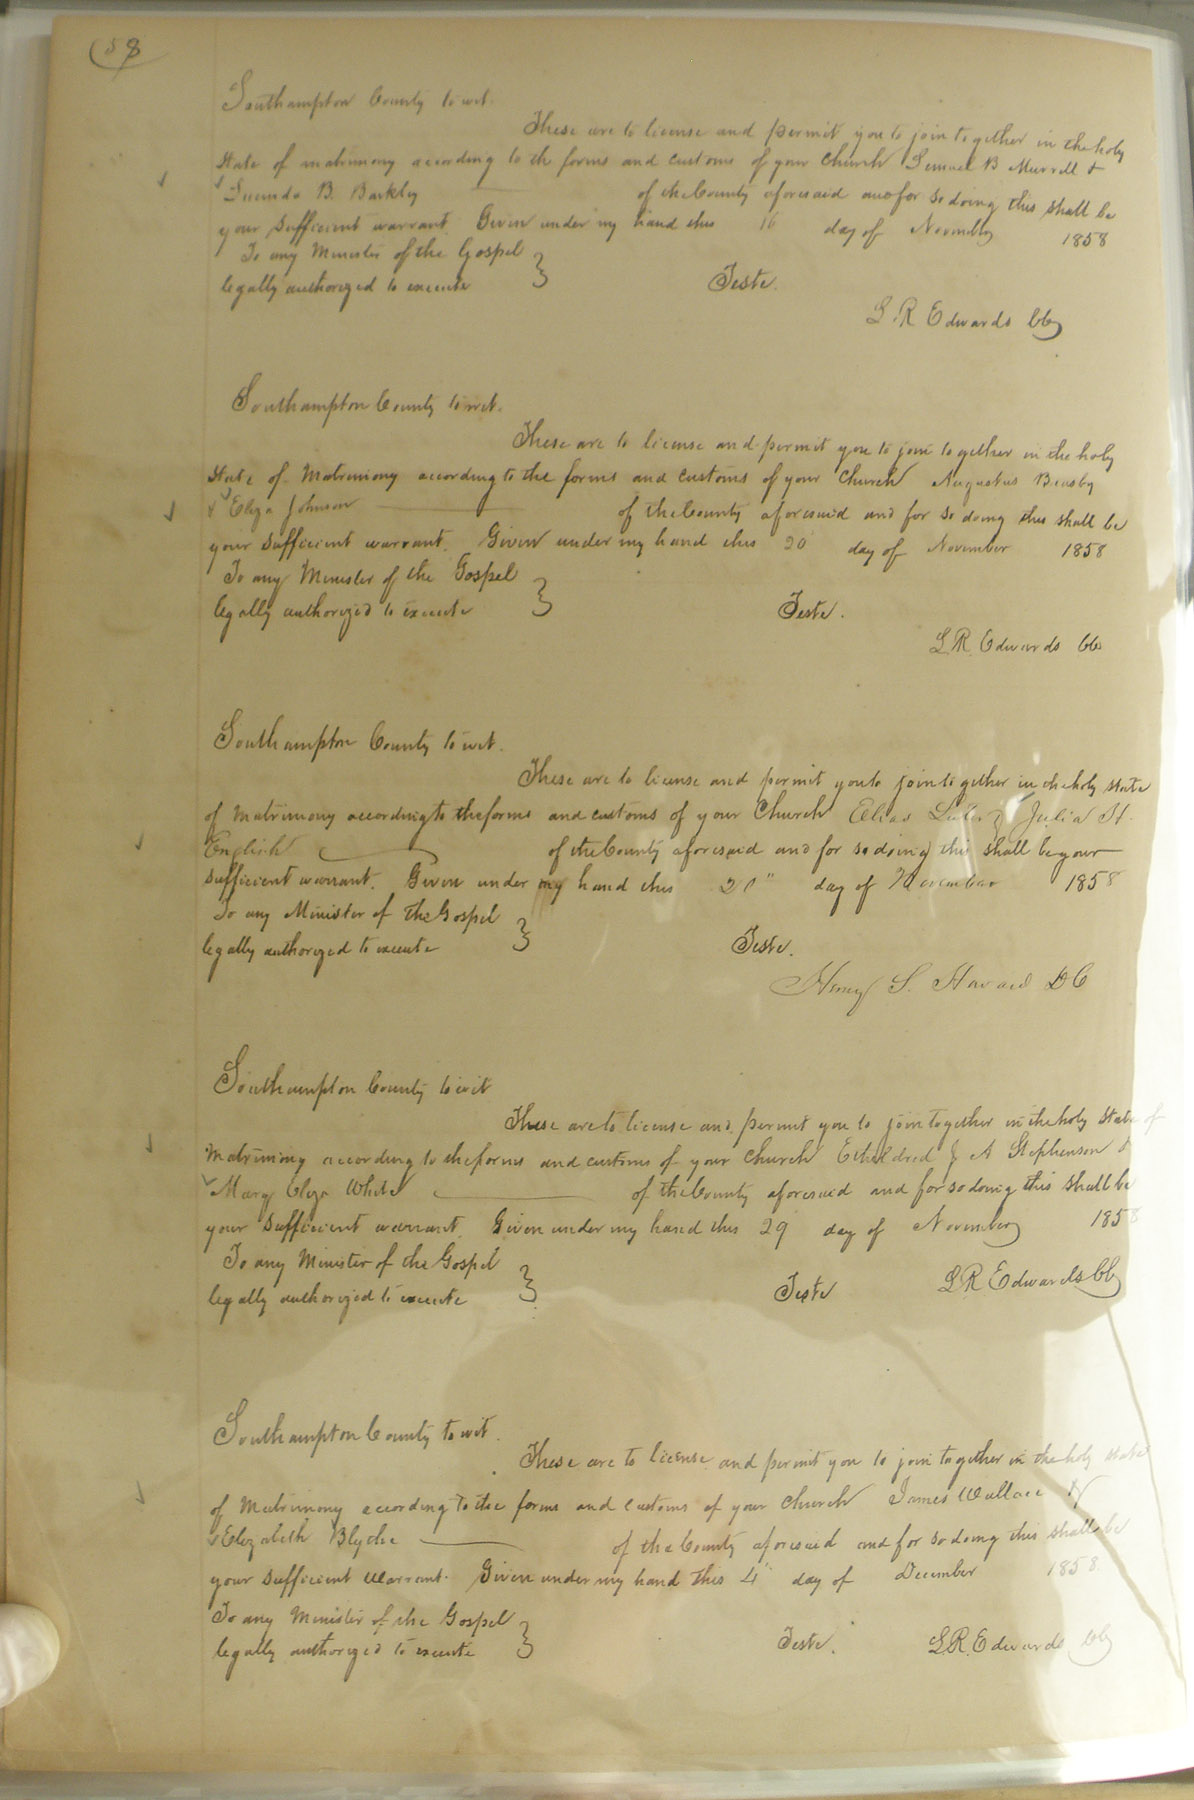 58
Southampton County to wit.
These are to license and permit you to join together in the holy
State of matrimony according to th forms and customs of your Church Lemuel B Murrell &
Lucinda B. Barkley of the County aforesaid and for so doing this shall be
your sufficient warrant. Given under my hand this 16 day of November 1858
To any Minister of the Gospel
legally authorized to execute } Teste.
L R Edwards
Southampton County to wit.
These are to license and permit you to join together in the holy
State of Matrimony according to the forms and customs of your Church Augustus Beasby
& Eliza Johnson of the County aforesaid and for so doing this shall be
your sufficient warrant. Given under my hand this 20 day of November 1858
To any Minister of the Gospel
legally authorized to execute } Teste.
L.R. Edwards
Southampton County to wit.
These are to license and permit you to join together in the holy state
of matrimony according to the forms and customs of your Church Elias & Julia H.
English of the County aforesaid and for so doing this shall be your
sufficient warrant. Given under my hand this 20" day of November 1858
To any Minister of the Gospel
legally authorized to execute } Teste.
Henry S. DC
Southampton County to wit
These are to license and permit you to join together in the holy State of
Matrimony according to the forms and customs of your Church Etheldred J A Stephenson &
Mary Eliza White of the County aforesaid and for so doing this shall be
your sufficient warrant. Given under my hand this 29 day of November 1858
To any Minister of the Gospel L R Edwards
legally authorized to execute } Teste
Southampton County to wit.
These are to license and permit you to join together in the holy state
of Matrimony according to the forms and customs of your Church James Wallace
& Elizabeth Blythe of the County aforesaid and for so doing this shall be
your sufficient warrant. Given under my hand this 4" day of December 1858.
To any Minister of the Gospel
legally authorized to execute } Teste. L.R. Edwards